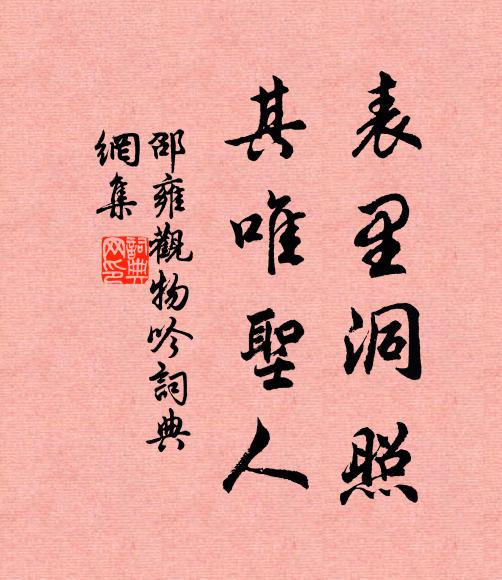 表里洞照
其唯聖人
邵雍觀物吟詞典
網集
詞典
网印